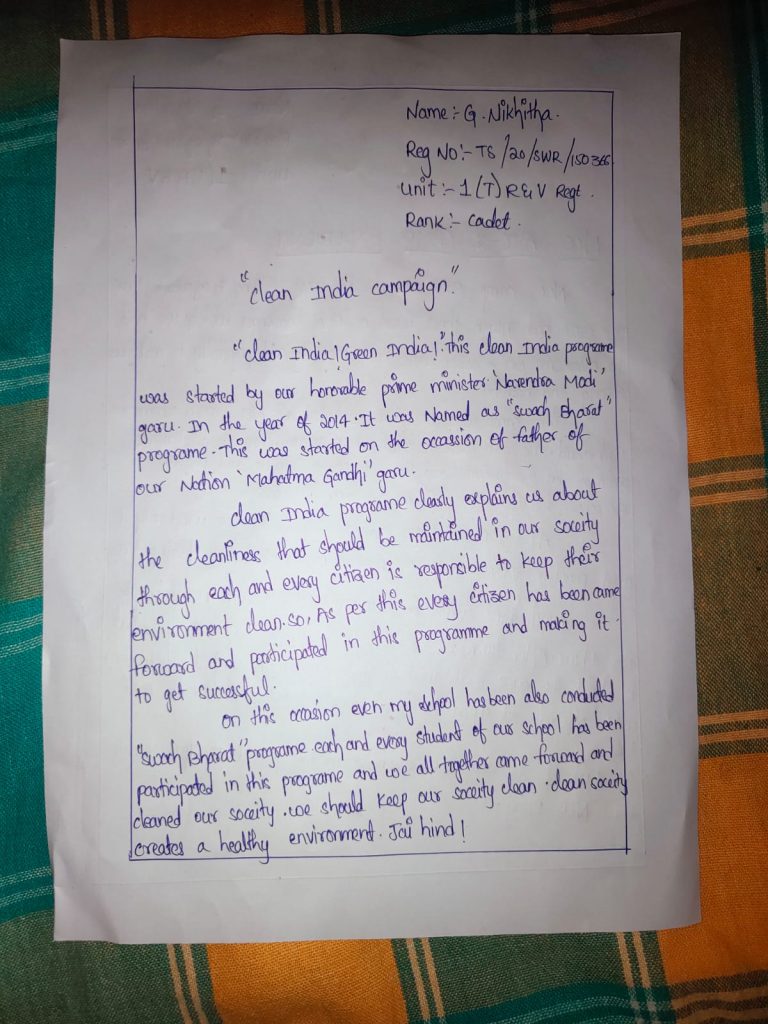 Name:- G. Nikhitha.
Reg No:- TS/20/SWR/150366
unit:- 1(T) R&V Regt.
Rank:- cadet.
"clean India campaign."
"clean India! Green India!". This clean India programe
was started by our honorable prime minister 'Narendra Modi'
garu. In the year of 2014. It was Named as "swach Bharat"
programe. This was started on the occassion of father of
our Nation 'Mahatma Gandhi' garu.
clean India programe clearly explains us about
the cleanliness that should be maintained in our soceity
through each and every citizen is responsible to keep their
environment clean. so, As per this every citizen has been came
forward and participated in this programme and making it
to get successful.
on this occasion even my school has been also conducted
"swach Bharat" programe each and every student of our school has been
participated in this programe and we all together came forward and
cleaned our soceity. we should keep our soceity clean. clean soceity
creates a healthy environment. Jai hind!